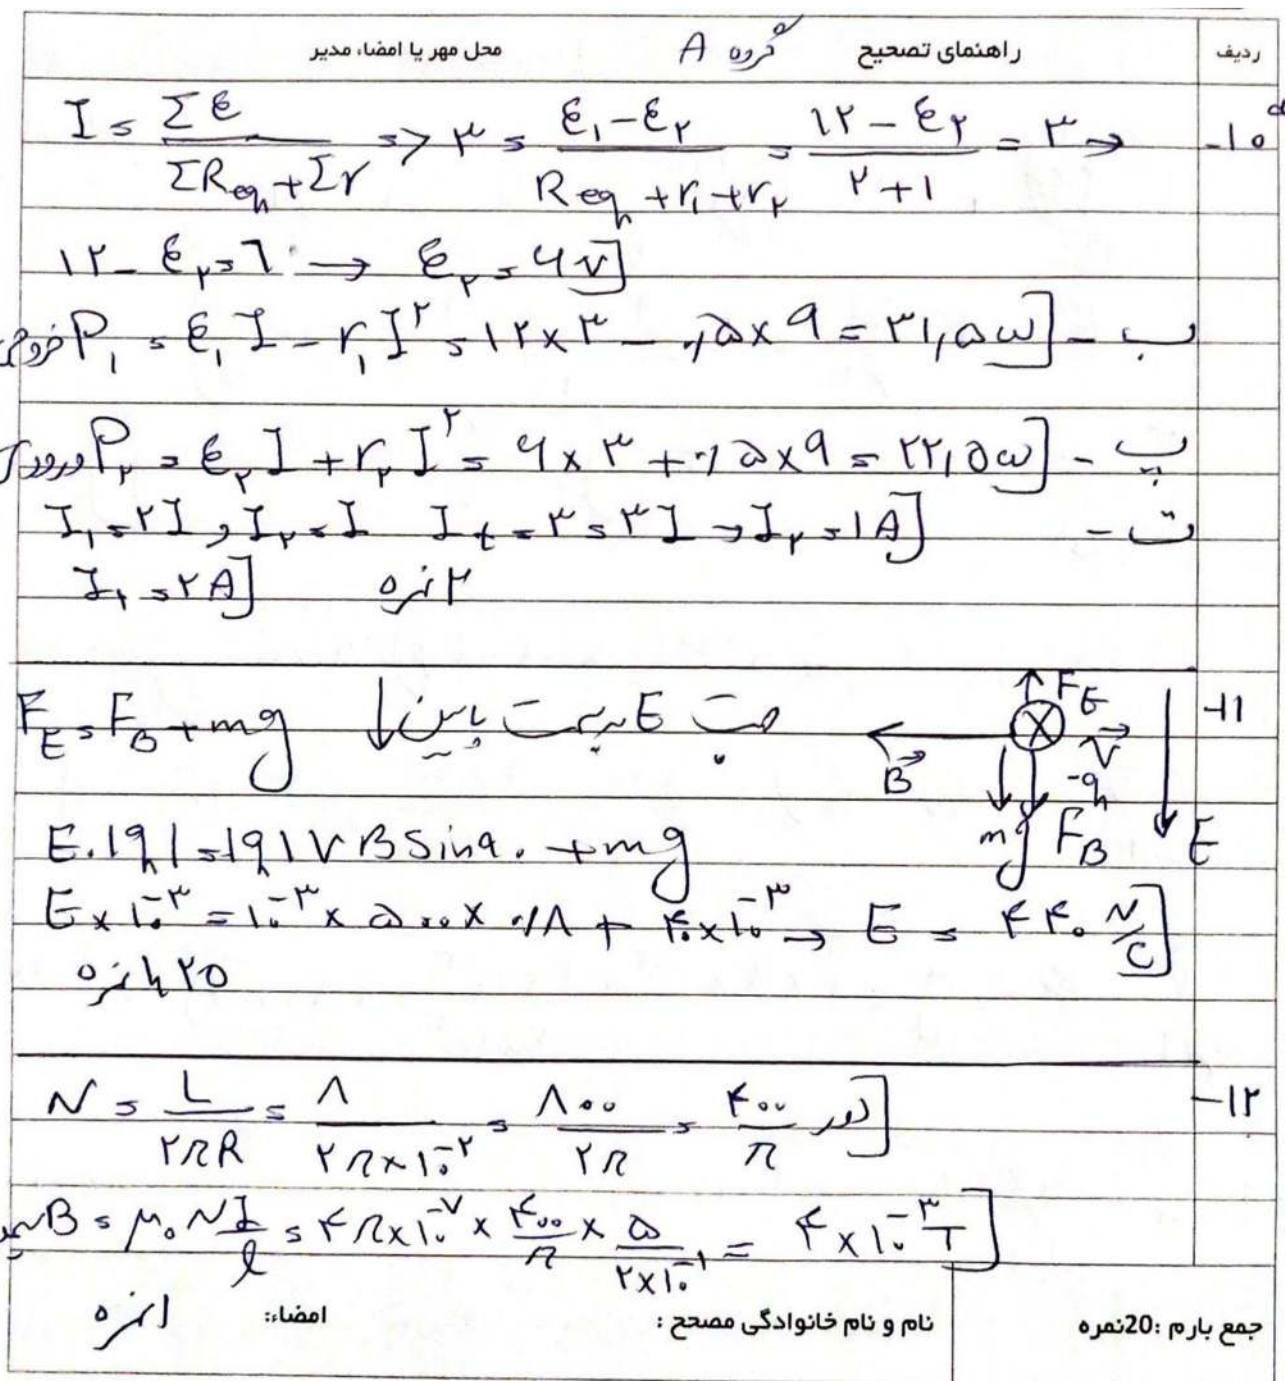 ردیف راهنمای تصحیح گروه A محل مهر یا امضاء مدیر
۱۰- I = Σε / ΣReq + Σr => ۳ = ε₁ - ε₂ / Req + r₁ + r₂ = ۱۲ - ε₂ / ۲ + ۱ = ۳ →
۱۲ - ε₂ = ۶ → ε₂ = ۶ V]
ب - خروجی P₁ = ε₁ I - r₁ I² = ۱۲ × ۳ - ۰٫۵ × ۹ = ۳۱٫۵ w]
پ - ورودی P₂ = ε₂ I + r₂ I² = ۶ × ۳ + ۰٫۵ × ۹ = ۲۲٫۵ w]
ت - I₁ = ۲I , I₂ = I I t = ۳ = ۳I → I₂ = ۱A]
I₁ = ۲A] ۲ نمره
۱۱- F_E = F_B + mg ↓ جهت E بسمت پایین B V F_E -q mg F_B E
E.|q| = |q| V B Sin۹۰ + mg
E × ۱۰⁻³ = ۱۰⁻³ × ۵۰۰ × ۰٫۸ + ۴۰ × ۱۰⁻³ → E = ۴۴۰ N/C]
۲۵ نمره
۱۲- N = L / ۲πR = ۸ / ۲π × ۱۰⁻² = ۸۰۰ / ۲π = ۴۰۰ / π دور]
B = μ₀ N I / ℓ = ۴π × ۱۰⁻⁷ × ۴۰۰ / π × ۵ / ۲ × ۱۰⁻¹ = ۴ × ۱۰⁻³ T]
جمع بارم :20نمره نام و نام خانوادگی مصحح : امضاء: ۱ نمره